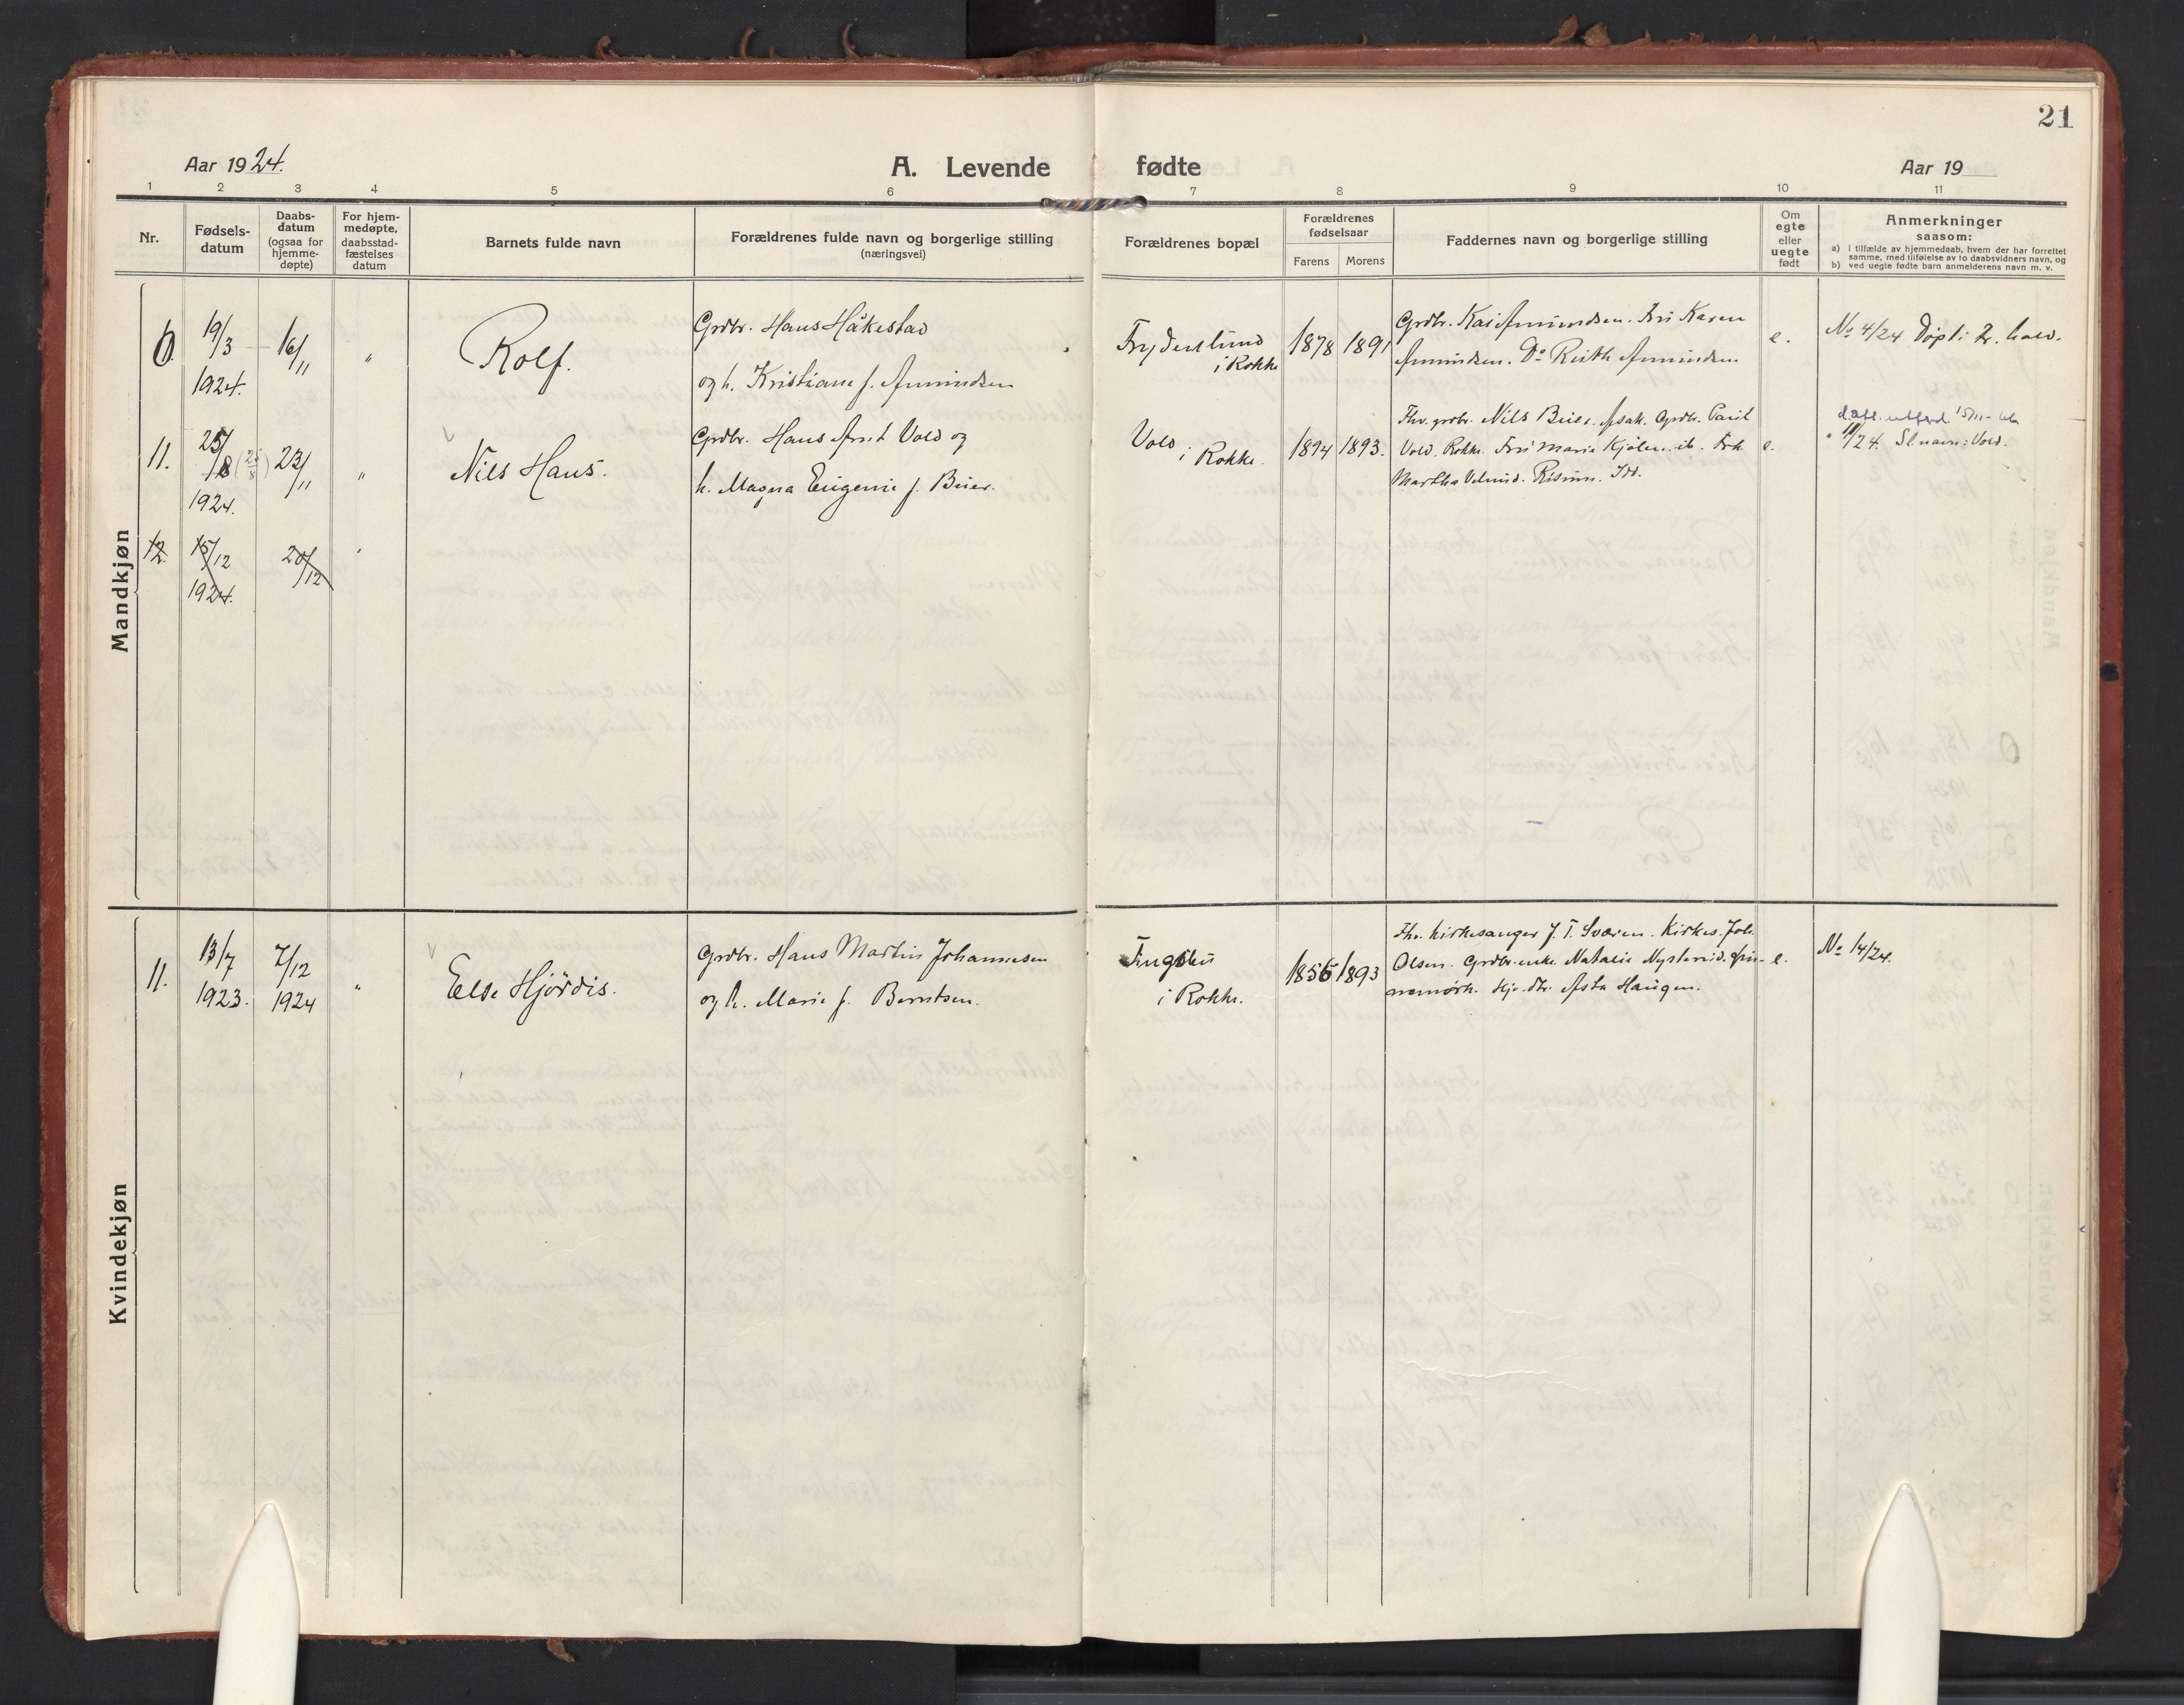 21
Aar 1924.
A. Levende fødte
Aar 19
1 2 3 4 5 6 7 8 9 10 11
Nr.
Fødsels-
datum
Daabs-
datum
(ogsaa for
hjemme-
døpte)
For hjem-
medøpte,
daabsstad-
fæstelses
datum
Barnets fulde navn
Forældrenes fulde navn og borgerlige stilling
(næringsvei)
Forældrenes bopæl
Forældrenes
fødselsaar
Farens Morens
Faddernes navn og borgerlige stilling
Om
egte
eller
uegte
født
Anmerkninger
saasom:
a) I tilfælde av hjemmedaab, hvem der har forrettet
samme, med tilføielse av to daabsvidners navn, og
b) ved uegte fødte barn anmelderens navn m. v.
Mandkjøn
0. 19/3 1924. 16/11 " Rolf.
Grdbr. Hans Håkestad
og h. Kristiane f. Amundsen
Frydenlund
i Rokke
1878 1891
Grdbr. Kai Amundsen. Fru Karen
Amundsen. Do Ruth Amundsen
e.
No 4/24 Døpt i Fr. hald.
11. 25/8 (25/8) 1924. 23/11 " Nils Hans.
Grdbr. Hans Arnt Vold og
h. Magna Eugenie f. Beier.
Vold
i Rokke.
1894 1893.
Fhv. grdbr. Nils Beier. Asak. Grdbr. Paul
Vold. Rokke. Fru Marie Kjølen. ib. Frk.
Martha Risum. Idd.
e.
d.att. utferd. 15/11
" 11/24. Sl.navn: Vold.
12. 15/12 1924. 20/12 "
Kvindekjøn
11. 13/7 1923. 7/12 1924 " Else Hjördis.
Grdbr. Hans Martin Johannesen
og h. Marie f. Berntsen.
Fingsbu
i Rokke.
1856 1893
Fhv. kirkesanger J. T. Sværen. Kirkes. Joh.
Olsen. Grdbr.enke. Natalie Nysterud.
Asta Haugen.
e.
No 14/24.